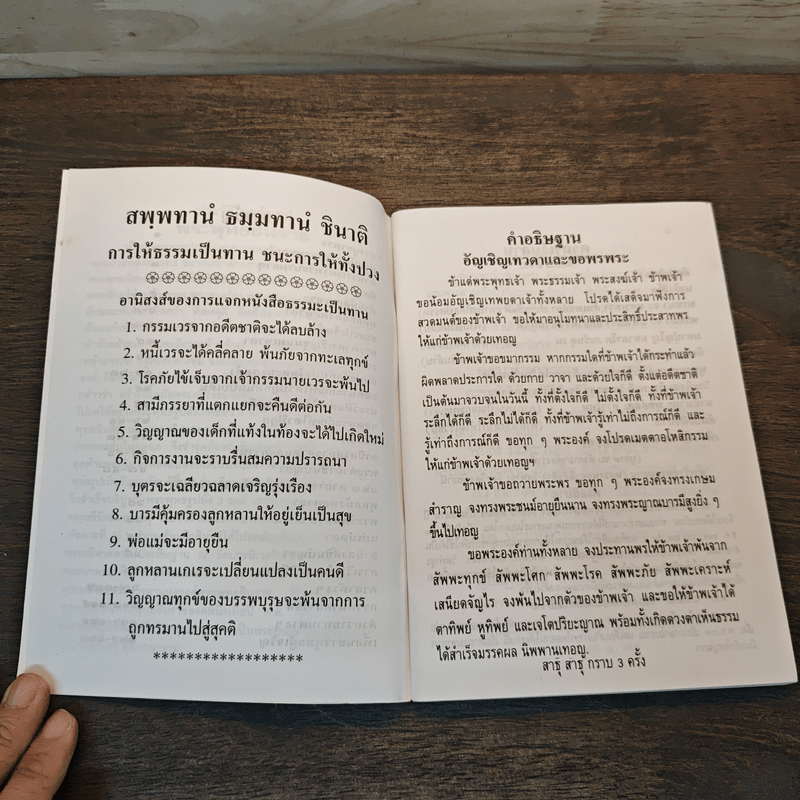 สพฺพทานํ ธมฺมทานํ ชินาติ
การให้ธรรมเป็นทาน ชนะการให้ทั้งปวง
อานิสงส์ของการแจกหนังสือธรรมะเป็นทาน
1. กรรมเวรจากอดีตชาติจะได้ลบล้าง
2. หนี้เวรจะได้คลี่คลาย พ้นภัยจากทะเลทุกข์
3. โรคภัยไข้เจ็บจากเจ้ากรรมนายเวรจะพ้นไป
4. สามีภรรยาที่แตกแยกจะคืนดีต่อกัน
5. วิญญาณของเด็กที่แท้งในท้องจะได้ไปเกิดใหม่
6. กิจการงานจะราบรื่นสมความปรารถนา
7. บุตรจะเฉลียวฉลาดเจริญรุ่งเรือง
8. บารมีคุ้มครองลูกหลานให้อยู่เย็นเป็นสุข
9. พ่อแม่จะมีอายุยืน
10. ลูกหลานเกเรจะเปลี่ยนแปลงเป็นคนดี
11. วิญญาณทุกข์ของบรรพบุรุษจะพ้นจากการ
ถูกทรมานไปสู่สุคติ
******************
คำอธิษฐาน
อัญเชิญเทวดาและขอพรพระ
ข้าแต่พระพุทธเจ้า พระธรรมเจ้า พระสงฆ์เจ้า ข้าพเจ้า
ขอน้อมอัญเชิญเทพยดาเจ้าทั้งหลาย โปรดได้เสด็จมาฟังการ
สวดมนต์ของข้าพเจ้า ขอให้มาอนุโมทนาและประสิทธิ์ประสาทพร
ให้แก่ข้าพเจ้าด้วยเทอญ
ข้าพเจ้าขอขมากรรม หากกรรมใดที่ข้าพเจ้าได้กระทำแล้ว
ผิดพลาดประการใด ด้วยกาย วาจา และด้วยใจก็ดี ตั้งแต่อดีตชาติ
เป็นต้นมาจวบจนในวันนี้ ทั้งที่ตั้งใจก็ดี ไม่ตั้งใจก็ดี ทั้งที่ข้าพเจ้า
ระลึกได้ก็ดี ระลึกไม่ได้ก็ดี ทั้งที่ข้าพเจ้ารู้เท่าไม่ถึงการณ์ก็ดี และ
รู้เท่าถึงการณ์ก็ดี ขอทุก ๆ พระองค์ จงโปรดเมตตาอโหสิกรรม
ให้แก่ข้าพเจ้าด้วยเทอญฯ
ข้าพเจ้าขอถวายพระพร ขอทุก ๆ พระองค์จงทรงเกษม
สำราญ จงทรงพระชนม์อายุยืนนาน จงทรงพระญาณบารมีสูงยิ่ง ๆ
ขึ้นไปเทอญ
ขอพระองค์ท่านทั้งหลาย จงประทานพรให้ข้าพเจ้าพ้นจาก
สัพพะทุกข์ สัพพะโศก สัพพะโรค สัพพะภัย สัพพะเคราะห์
เสนียดจัญไร จงพ้นไปจากตัวของข้าพเจ้า และขอให้ข้าพเจ้าได้
ตาทิพย์ หูทิพย์ และเจโตปริยะญาณ พร้อมทั้งเกิดดวงตาเห็นธรรม
ได้สำเร็จมรรคผล นิพพานเทอญ.
สาธุ สาธุ กราบ 3 ครั้ง